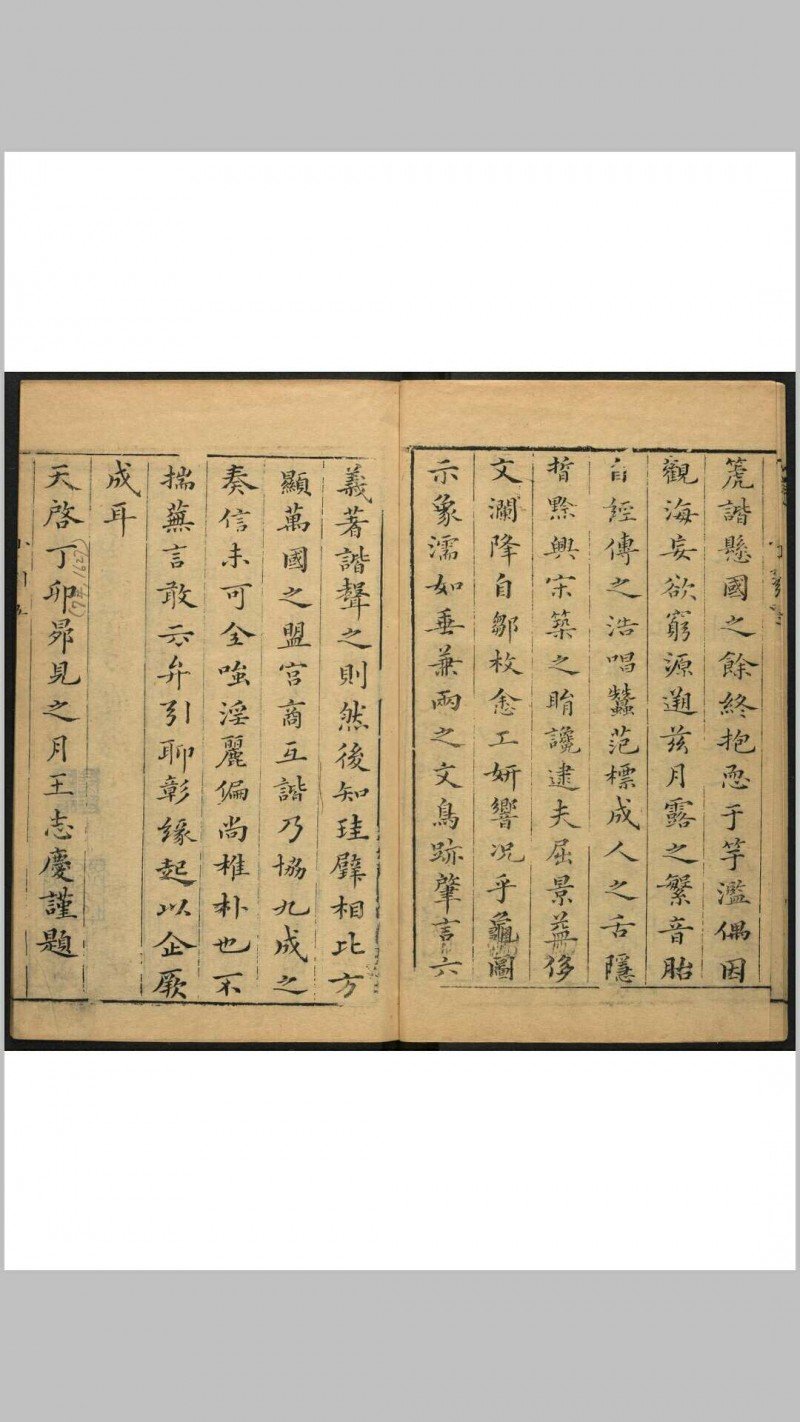 箎諧懸國之餘終抱恧于竽濫偶因
觀海妄欲窮源遡茲月露之繁音胎
自經傳之浩唱蠶范標成人之舌隱
晳黔興宋築之眙讒逮夫屈景益侈
文瀾降自鄒枚愈工妍響况乎龜圖
示象濡如垂兼兩之文鳥跡肇言六
義著諧聲之則然後知珪璧相比方
顯萬國之盟宮商互諧乃協九成之
奏信未可全嗤淫麗偏尚椎朴也不
揣蕪言敢云弁引聊彰緣起以企厥
成耳
天啓丁卯昴見之月王志慶謹題